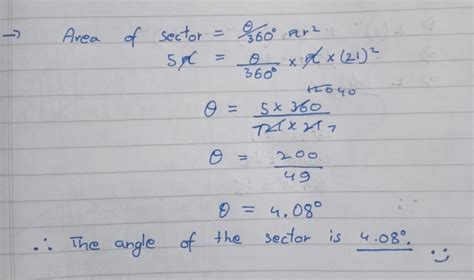 → Area of sector = θ/360° πr²
5π = θ/360° × π × (21)²
120 40
θ = 5 × 360 / 21 × 21 7
θ = 200 / 49
θ = 4.08°
∴ The angle of the sector is 4.08°.